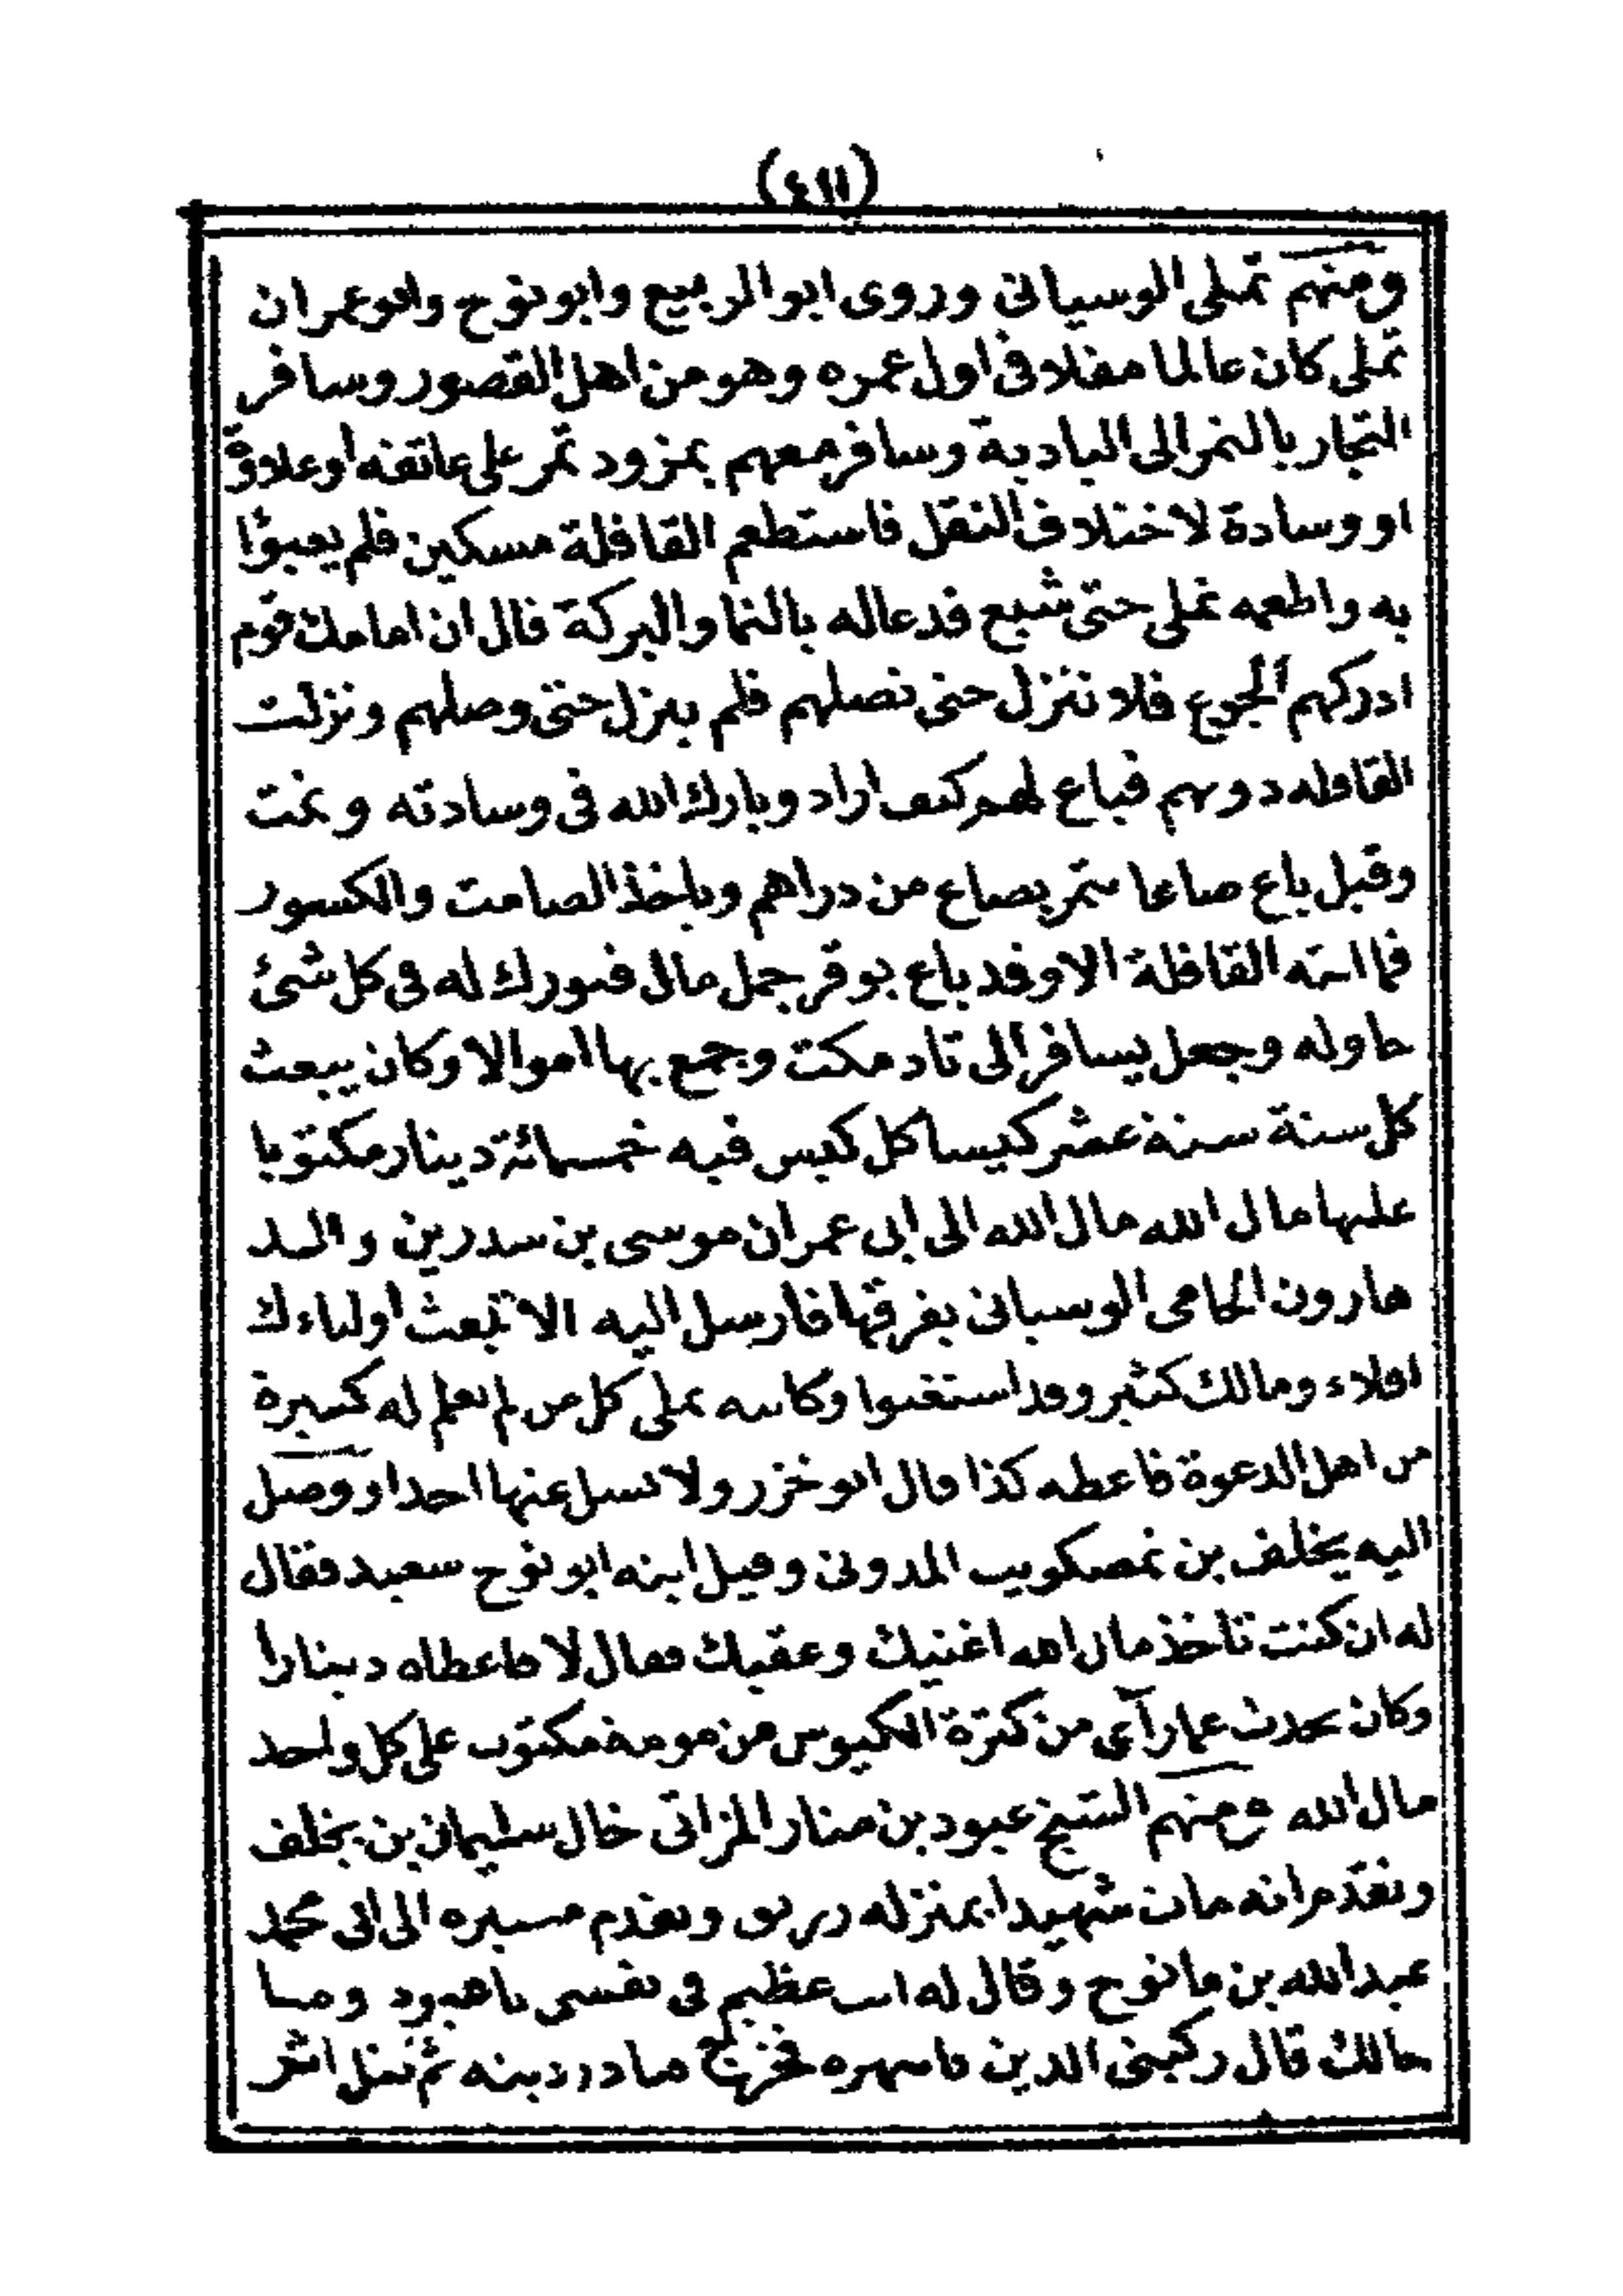 (٤١١)
ومنهم تملى الوسيانى وروى ابو الربيع وابو نوح وابو عمران
تملى كان عالما مقلا فى اول عمره وهو من اهل القصور وسافر
التجار بالتمر الى البادية وسافر معهم بمزود تمر على عاتقه او علاوة
او وسادة لاختلاف النقل فاستطعم القافلة مسكين فلم يعبؤا
به واطعمه تملى حتى شبع فدعا له بالنما والبركة قال ان امامك قوم
ادركهم الجوع فلا تنزل حتى تصلهم فلم ينزل حتى وصلهم ونزلت
القافله دونهم فباع لهم كيف اراد وبارك الله فى وسادته ونمت
وقيل باع صاعا بتمر بصاع من دراهم وياخذ الصامت والكسور
فما اتته القافلة الا وقد باع بوقر جمل مال فبورك له فى كل شئ
حاوله وجعل يسافر الى تادمكت وجمع بها اموالا وكان يبعث
كل سنة ستة عشر كيسا كل كيس فيه خمسمائة دينار مكتوبا
عليها مال الله مال الله الى ابى عمران موسى بن سدرين والد
هارون الحامى الوسيانى يفرقها فارسل اليه الا تبعث اولياءك
اقلاء ومالك كثير وقد استغنوا وكاتبه تملى كل من لم تعلم له كبيرة
من اهل الدعوة فاعطه كذا قال ابو خزر ولا تسل عنها احدا ووصل
اليه يخلف بن تمصكويب المدونى وقيل ابنه ابو نوح سعيد فقال
له ان كنت تاخذ مال الله اغنيك وعقبك فقال لا فاعطاه دينارا
وكان يحدث عما رآى من كثرة الكيوس من مكتوب على كل واحد
مال الله ومنهم الشيخ عبود بن منار المزاتى خال سليمان بن يخلف
وتقدم انه مات شهيدا بمنزله وتقدم مسيره الى ابى محمد
عبد الله بن مانوح وقال له انت عظيم فى نفسى يا عبود وما
حالك قال ركبنى الدين فاسهره فخرج مادر دينه ثم تمثل اثر